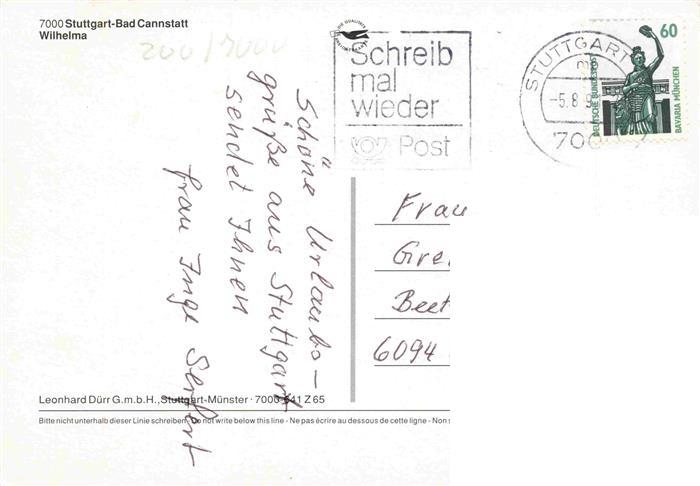 7000 Stuttgart-Bad Cannstatt
Wilhelma
200/7000
Schreib
mal
wieder
Post
STUTTGART
-5.8.9
700
60
DEUTSCHE BUNDESPOST
BAVARIA MÜNCHEN
Schöne Urlaubs-
grüße aus Stuttgart
sendet Ihnen
Frau Inge Seifert
Frau
Gre
Beet
6094
Leonhard Dürr G.m.b.H., Stuttgart-Münster · 7000 341 Z 65
Bitte nicht unterhalb dieser Linie schreiben. Do not write below this line - Ne pas écrire au dessous de cette ligne - Non s